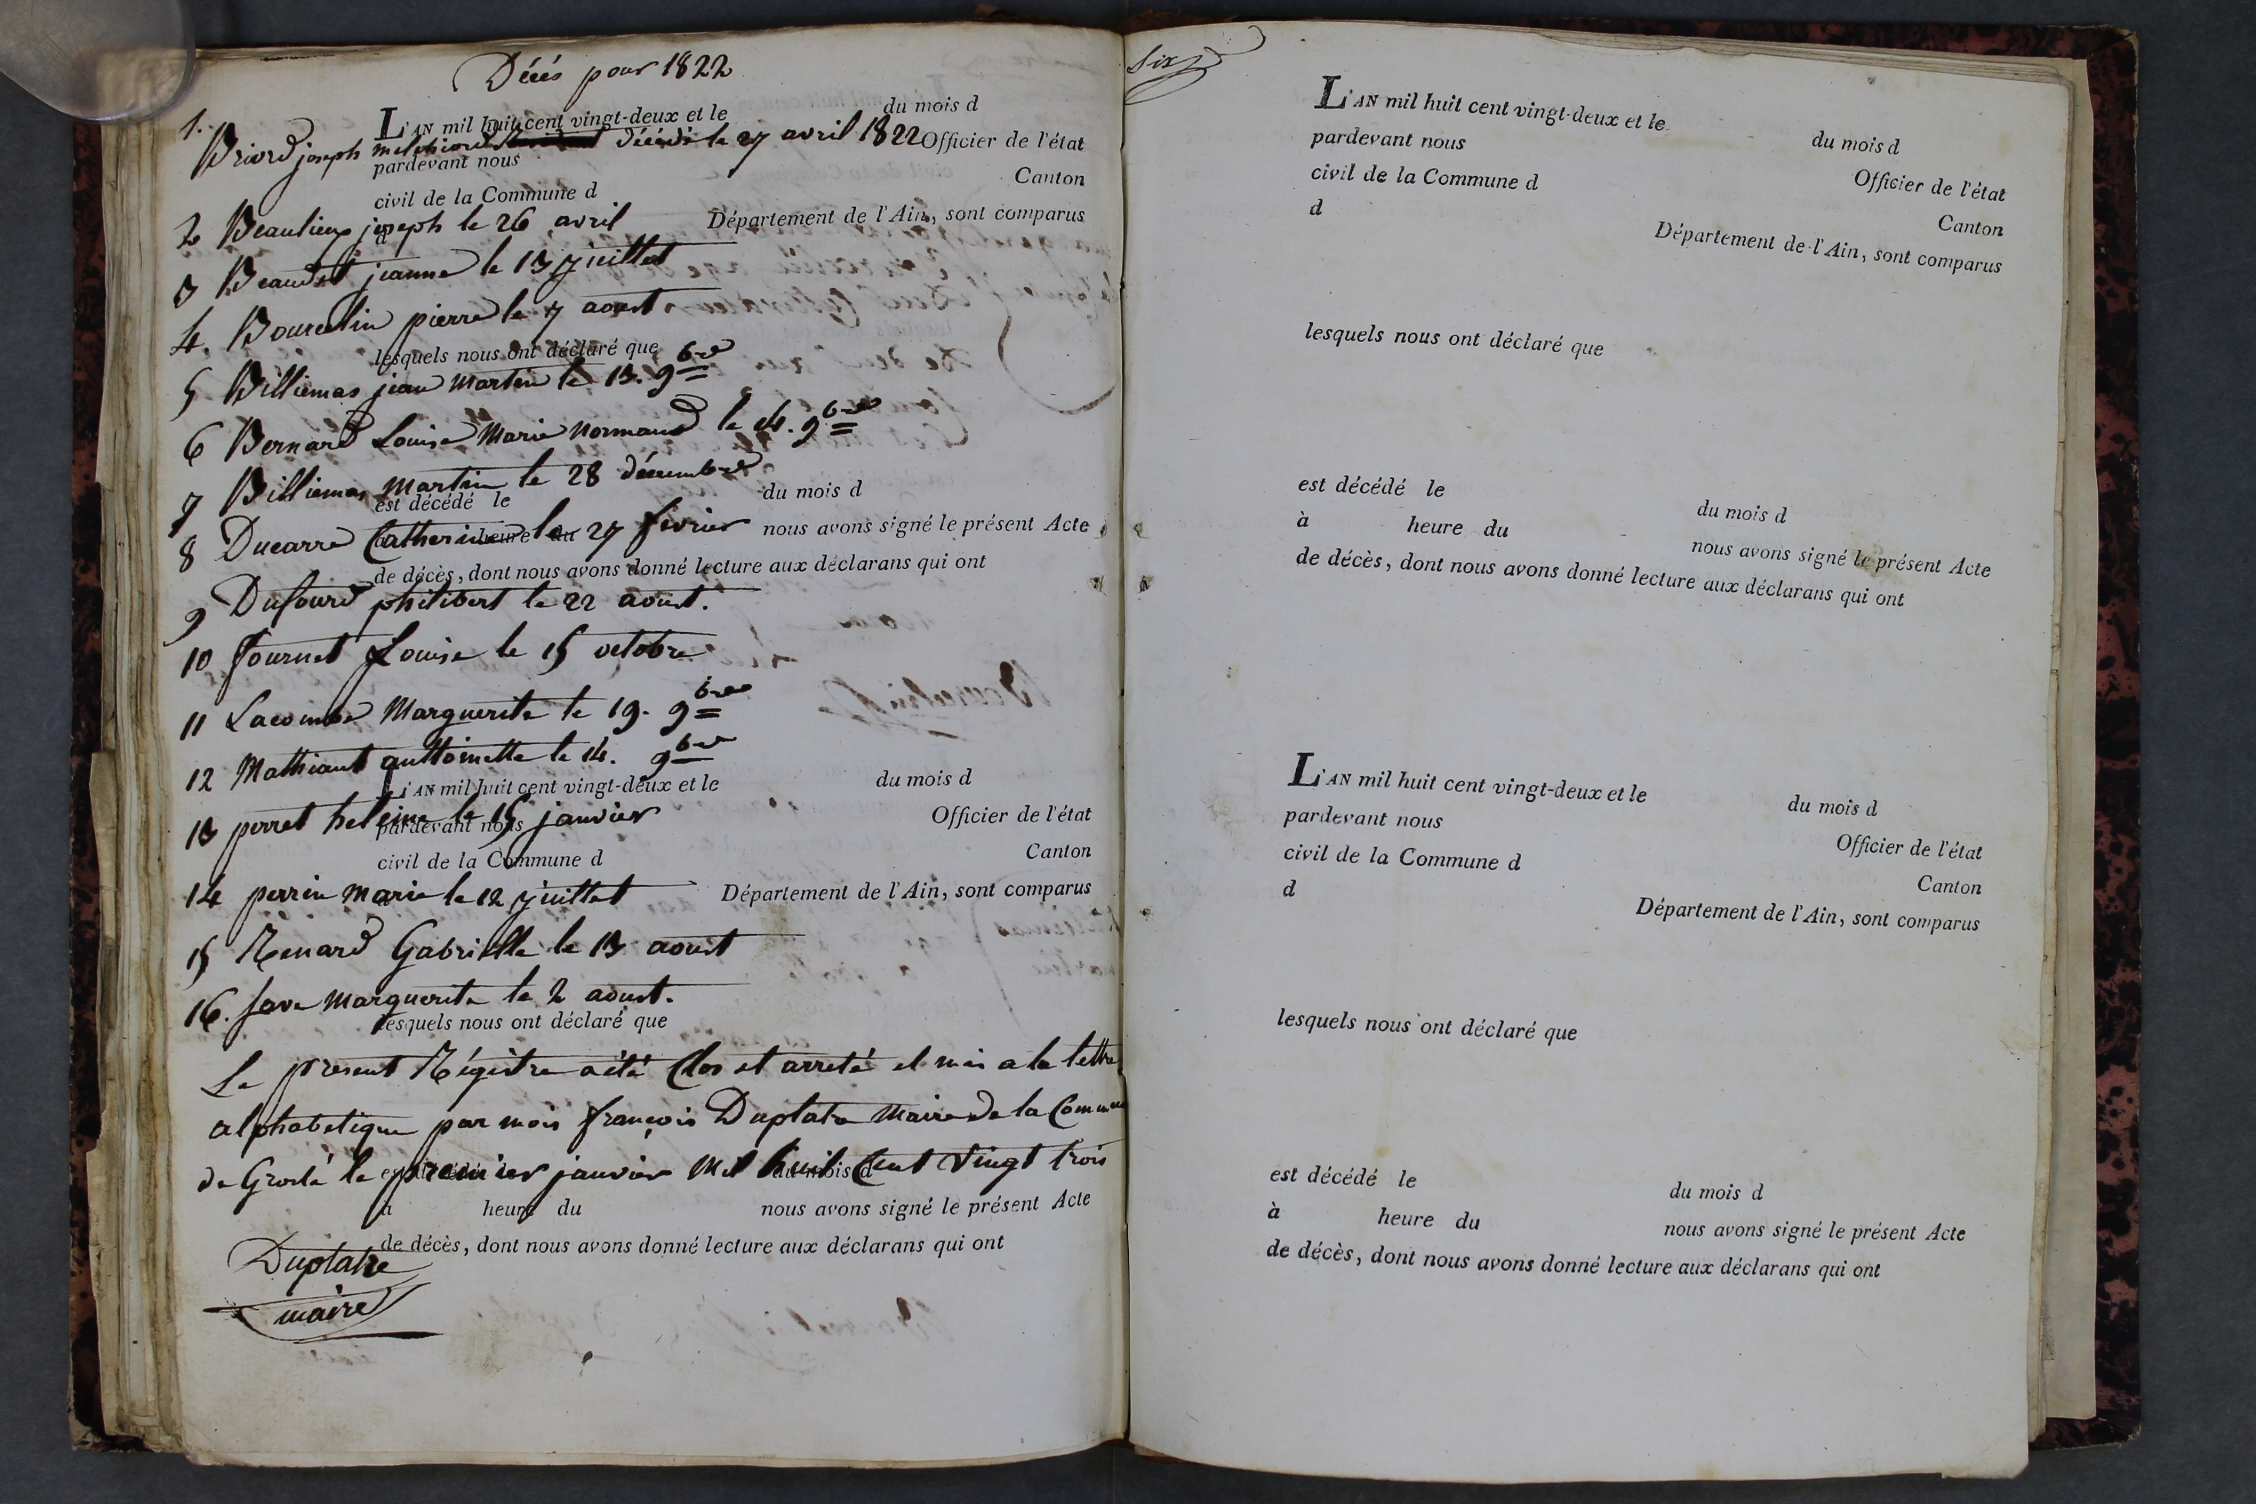 Décés pour 1822
L'AN mil huit cent vingt-deux et le du mois d
1. Briord joseph melchiord décédé le 27 avril 1822
pardevant nous Officier de l'état
civil de la Commune d Canton
2 Beaulieux joseph le 26 avril
d Département de l'Ain, sont comparus
3 Beaudet jeanne le 13 juillet
4. Bourdin pierre le 7 aoust
lesquels nous ont déclaré que
5 Billiemas jean martin le 13. 9bre
6 Bernard Louise Marie normand le 4. 9bre
7 Billiemas martin le 28 décembre
est décédé le du mois d
8 Ducarre Catherine le 27 février
heure du nous avons signé le présent Acte
de décès, dont nous avons donné lecture aux déclarans qui ont
9 Dufourd philibert le 22 aoust.
10 fournet Louise le 15 octobre
11 Lacombe Marguerite le 19. 9bre
12 Mathiant anttoinette le 14. 9bre
L'AN mil huit cent vingt-deux et le du mois d
13 perret heleine le 15 janvier
pardevant nous Officier de l'état
civil de la Commune d Canton
14 perrin marie le 12 juillet
Département de l'Ain, sont comparus
15 Renard Gabrielle le 13 aoust
16. fave marguerite le 2 aoust.
lesquels nous ont déclaré que
Le présent Régistre a été Clos et arreté et mis a la lettre
alphabetique par mois françois Duplatre Maire de la Commune
de Groslé le premier janvier Mil huit Cent Vingt trois
est décédé le du mois d
à heure du nous avons signé le présent Acte
de décès, dont nous avons donné lecture aux déclarans qui ont
Duplatre
maire
Six
L'AN mil huit cent vingt-deux et le du mois d
pardevant nous Officier de l'état
civil de la Commune d Canton
d Département de l'Ain, sont comparus
lesquels nous ont déclaré que
est décédé le du mois d
à heure du nous avons signé le présent Acte
de décès, dont nous avons donné lecture aux déclarans qui ont
L'AN mil huit cent vingt-deux et le du mois d
pardevant nous Officier de l'état
civil de la Commune d Canton
d Département de l'Ain, sont comparus
lesquels nous ont déclaré que
est décédé le du mois d
à heure du nous avons signé le présent Acte
de décès, dont nous avons donné lecture aux déclarans qui ont